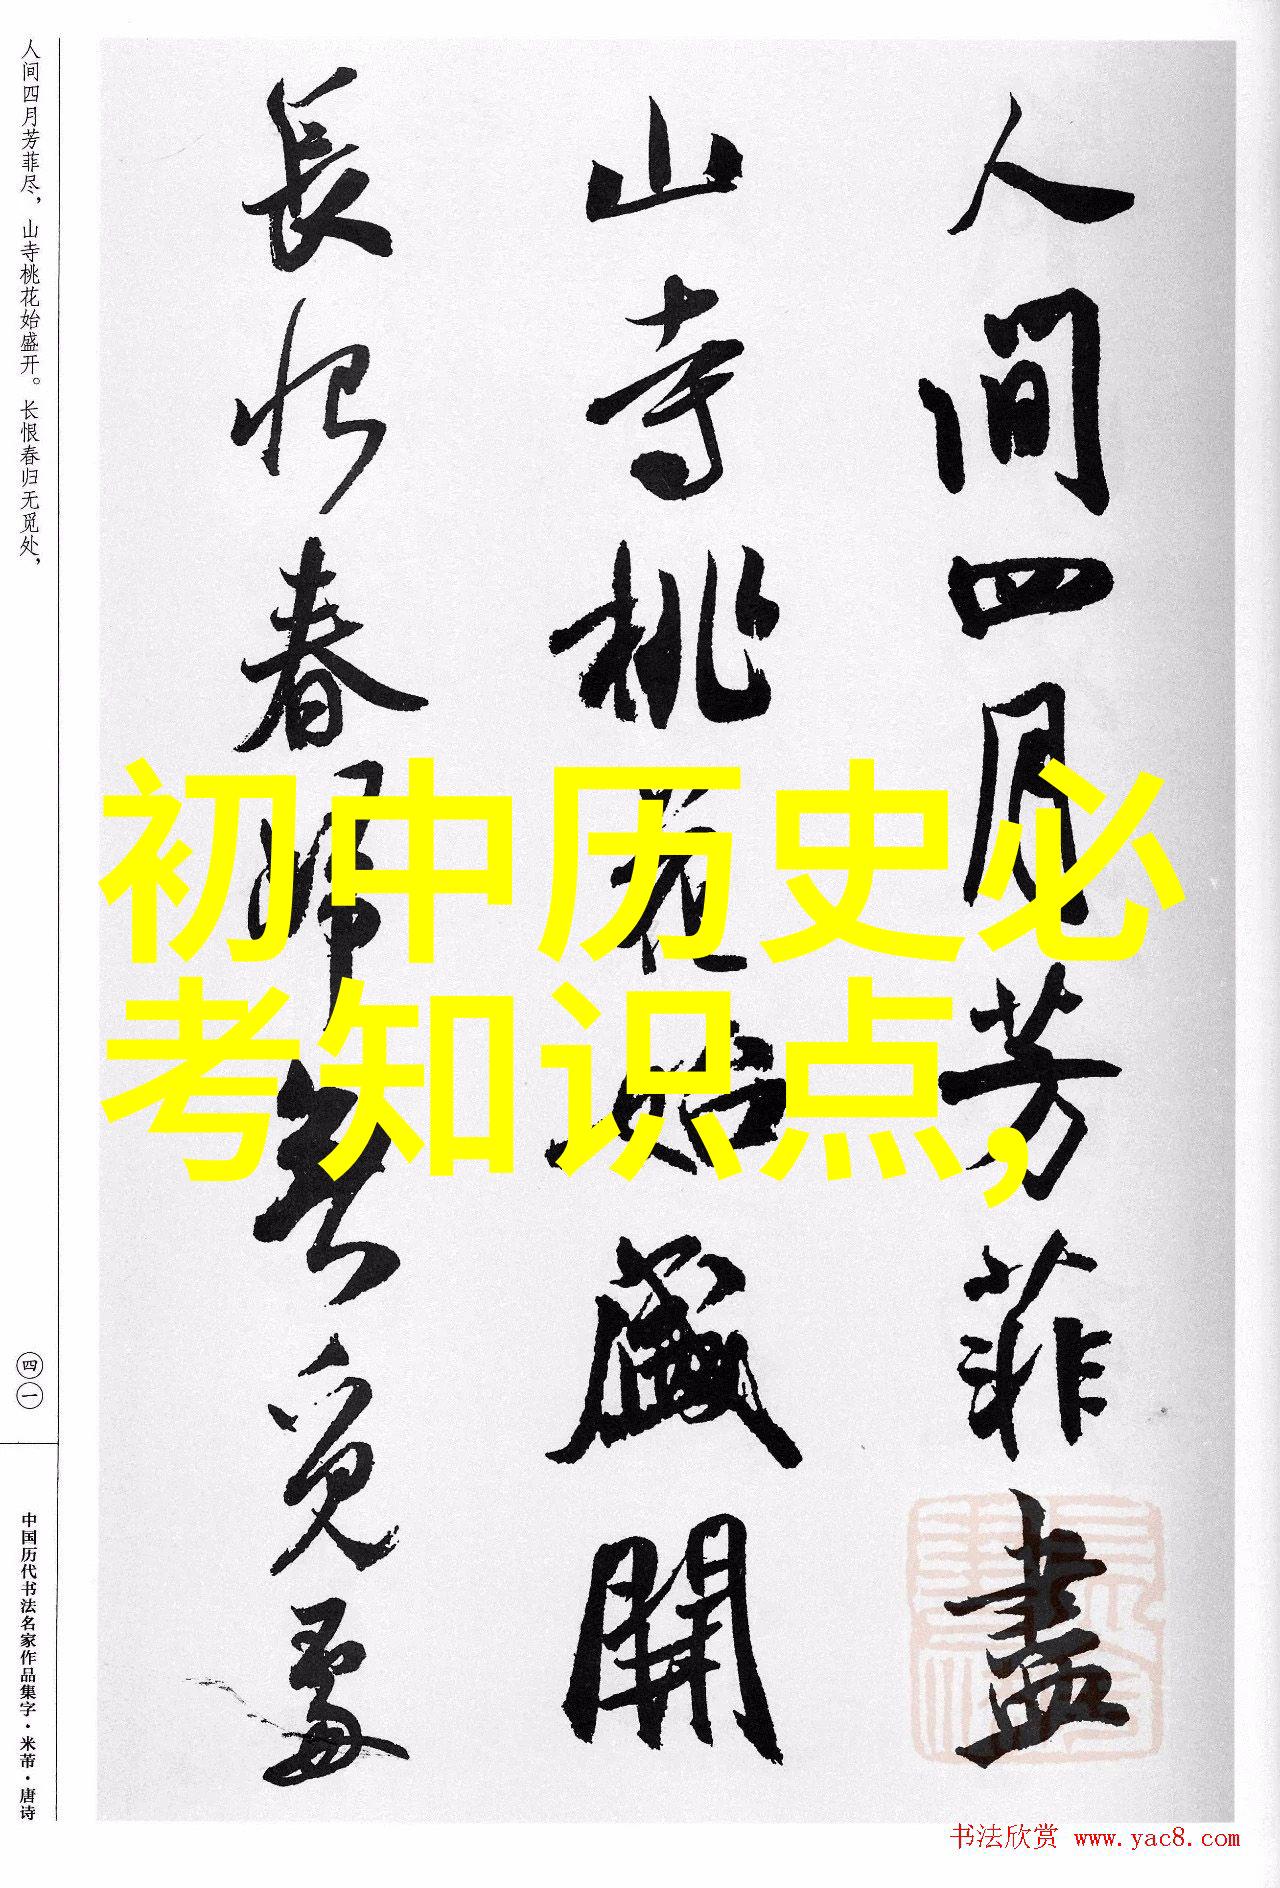 人间四月芳菲尽，山寺桃花始盛开。长恨春归无觅处，
人間四月芳菲盡
山寺桃花始盛開
長恨春歸無覓處
初中历史必
考知识点，
四一
中国历代书法名家作品集字·米芾·唐诗
书法欣赏 www.yac8.com